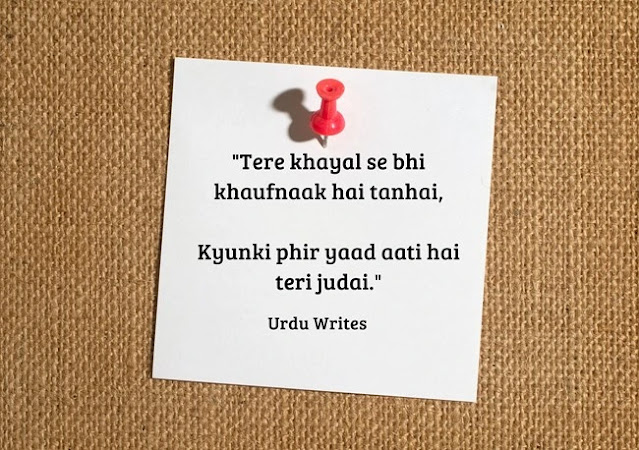 "Tere khayal se bhi
khaufnaak hai tanhai,
Kyunki phir yaad aati hai
teri judai."
Urdu Writes